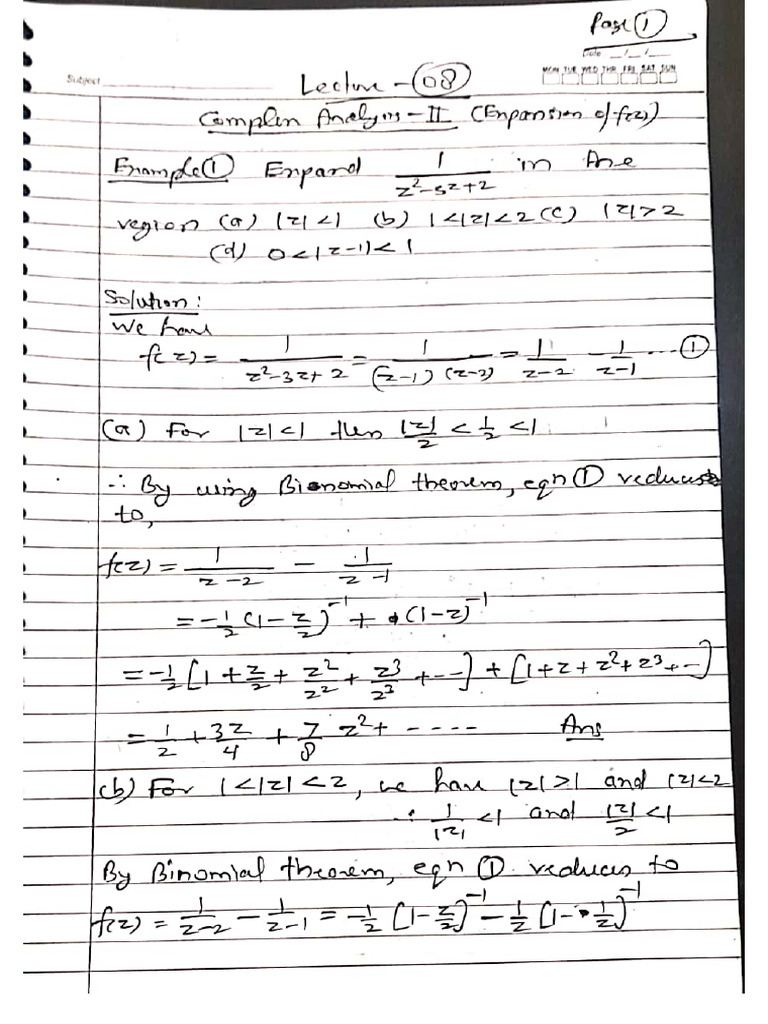 Page ①
Date __/__/__
MON TUE WED THR FRI SAT SUN
Subject
Lecture - 08
Complex Analysis - II (Expansion of f(z))
Example ① Expand 1/(z²-3z+2) in the
region (a) |z|<1 (b) 1<|z|<2 (c) |z|>2
(d) 0<|z-1|<1
Solution:
We have
f(z) = 1/(z²-3z+2) = 1/((z-1)(z-2)) = 1/(z-2) - 1/(z-1) ---- ①
(a) For |z|<1 then |z|/2 < 1/2 < 1
∴ By using Bionomial theorem, eqn ① reduces
to,
f(z) = 1/(z-2) - 1/(z-1)
= -1/2 (1-z/2)⁻¹ + (1-z)⁻¹
= -1/2 [1 + z/2 + z²/2² + z³/2³ + --] + [1+z+z²+z³+--]
= 1/2 + 3z/4 + 7/8 z² + ---- Ans
(b) For 1<|z|<2, we have |z|>1 and |z|<2
∴ 1/|z| <1 and |z|/2 <1
By Binomial theorem, eqn ① reduces to
f(z) = 1/(z-2) - 1/(z-1) = -1/2 [1-z/2]⁻¹ - 1/z [1-1/z]⁻¹